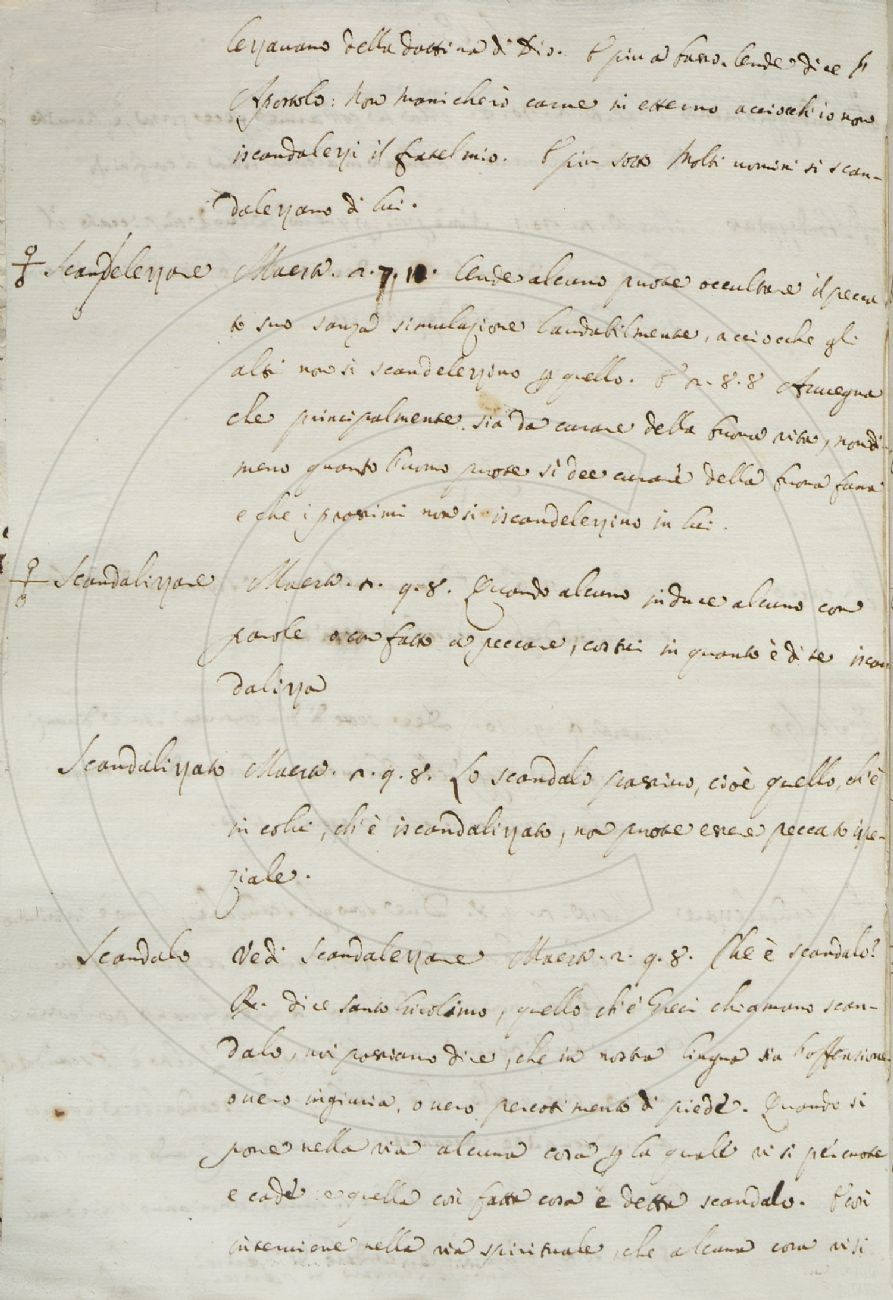 lezzavano della dottrina di Dio. E piu a basso. Lende dice l'
Apostolo: Non manicherò carne in etterno acciocch'io non
iscandalezzi il fratel mio. E piu sotto Molti uomini si scan-
dalezzano di lui.
Scandelezzare Maestr. 2. 7. 10. Lende alcuno puote occultare il pecca-
to suo sanza simulazione laudabilmente, acciocche gli
altri non si scandelezzino p quello. E 2. 8. 8 Avvegna
che principalmente sia da curare della buona vita, nondi-
meno quanto l'uomo puote si dee curare della buona fama
e che i prossimi non si iscandelezzino in lui.
Scandalizzare Maestr. 2. 9. 8. Quando alcuno induce alcuno con
parole o con fatto a peccare, costui in quanto è di se iscan
dalizza
Scandalizzato Maestr. 2. 9. 8. Lo scandalo passivo, cioè quello, ch'è
in colui, ch'è iscandalizzato, non puote essere peccato ispe-
ziale.
Scandalo Vedi Scandalezzare Maestr. 2. 9. 8. Che è scandalo?
R. dice santo Girolimo, quello ch'e' Greci chiamano scan-
dalo, noi possiamo dire, che in nostra lingua sia l'offensione,
overo ingiuria, overo percotimento di piede. Quando si
pone nella via alcuna cosa p la quale vi si percuote
e cade: e quella così fatta cosa è detta scandalo. E così
interviene nella via spirituale, che alcuna cosa vi si